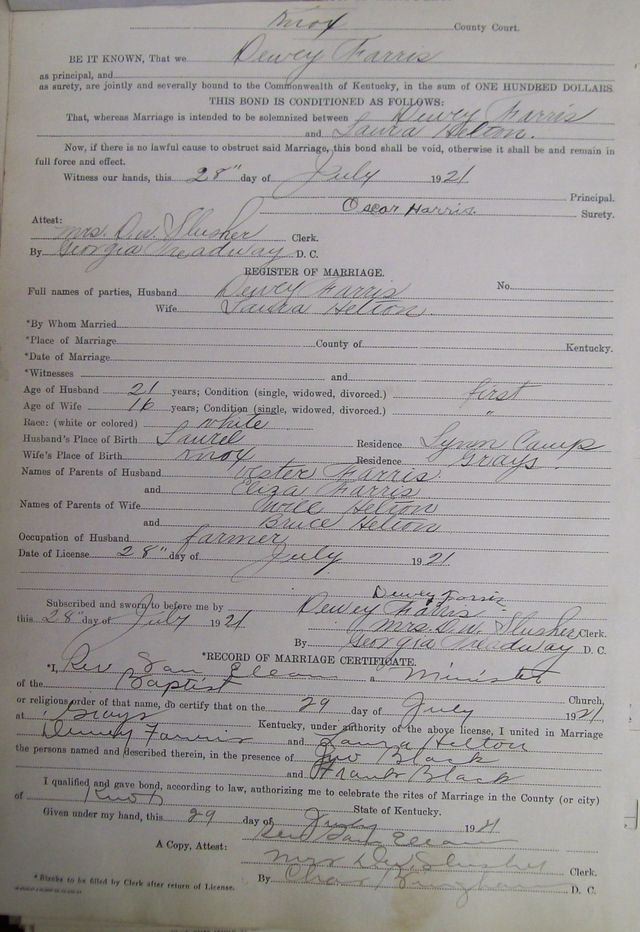 Knox County Court.
BE IT KNOWN, That we Dewey Farris
as principal, and
as surety, are jointly and severally bound to the Commonwealth of Kentucky, in the sum of ONE HUNDRED DOLLARS.
THIS BOND IS CONDITIONED AS FOLLOWS:
That, whereas Marriage is intended to be solemnized between Dewey Farris
and Laura Helton.
Now, if there is no lawful cause to obstruct said Marriage, this bond shall be void, otherwise it shall be and remain in
full force and effect.
Witness our hands, this 28" day of July 1921
Principal.
Oscar Harris. Surety.
Attest:
Mrs. D.W. Slusher Clerk.
By Georgia Treadway D. C.
REGISTER OF MARRIAGE.
Full names of parties, Husband Dewey Farris No.
Wife Laura Helton.
*By Whom Married
*Place of Marriage County of Kentucky.
*Date of Marriage
*Witnesses and
Age of Husband 21 years; Condition (single, widowed, divorced.) first
Age of Wife 16 years; Condition (single, widowed, divorced.) "
Race: (white or colored) white
Husband's Place of Birth Laurel Residence Lynn Camp
Wife's Place of Birth Knox Residence Grays.
Names of Parents of Husband Vester Farris.
and Eliza Farris
Names of Parents of Wife Will Helton
and Bruce Helton
Occupation of Husband farmer
Date of License 28" day of July 1921
Dewey Farris
Subscribed and sworn to before me by Dewey Farris
this 28" day of July 1921 Mrs. D.W. Slusher Clerk.
By Georgia Treadway D. C.
*RECORD OF MARRIAGE CERTIFICATE.
*I, Rev Sam Eleam a Minister
of the Baptist Church,
or religious order of that name, do certify that on the 29 day of July 1921,
at Grays Kentucky, under authority of the above license, I united in Marriage
Dewey Farris and Laura Helton
the persons named and described therein, in the presence of Black
and Frank Black
I qualified and gave bond, according to law, authorizing me to celebrate the rites of Marriage in the County (or city)
of Knox State of Kentucky.
Given under my hand, this 29 day of July 1921
Rev Sam Eleam
A Copy, Attest: Mrs D W Slusher Clerk.
By Chas Bingham D. C.
*Blanks to be filled by Clerk after return of License.